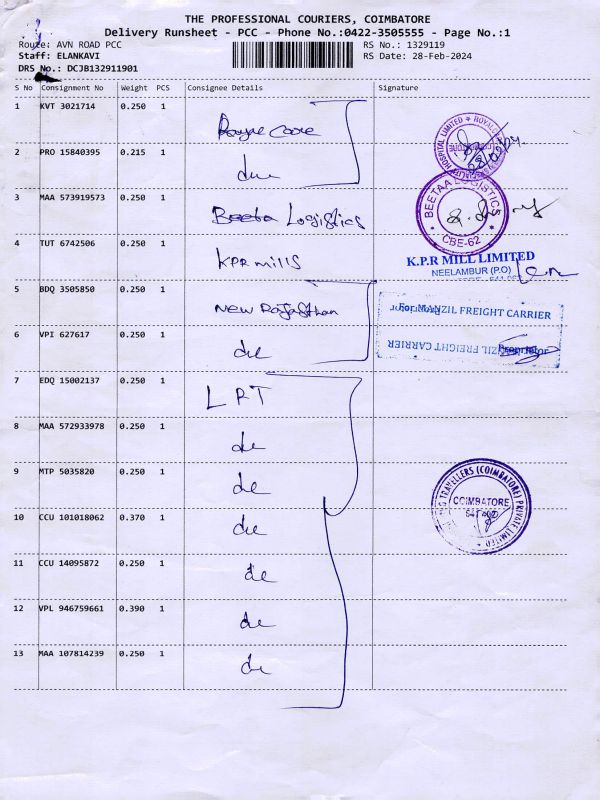 THE PROFESSIONAL COURIERS, COIMBATORE
Delivery Runsheet - PCC - Phone No.:0422-3505555 - Page No.:1
Route: AVN ROAD PCC RS No.: 1329119
Staff: ELANKAVI RS Date: 28-Feb-2024
DRS No.: DCJB132911901
S No Consignment No Weight PCS Consignee Details Signature
1 KVT 3021714 0.250 1 Care
2 PRO 15840395 0.215 1
3 MAA 573919573 0.250 1 Beeta Logistics
BEETAA LOGISTICS CBE-62
4 TUT 6742506 0.250 1 KPR mills
K.P.R MILL LIMITED
NEELAMBUR (P.O)
5 BDQ 3505850 0.250 1 New Rajasthan
For MANZIL FREIGHT CARRIER
6 VPI 627617 0.250 1 do
FREIGHT CARRIER
Proprietor
7 EDQ 15002137 0.250 1 LRT
8 MAA 572933978 0.250 1 do
9 MTP 5035820 0.250 1 do
TRAVELLERS (COIMBATORE) PRIVATE LIMITED
COIMBATORE
10 CCU 101018062 0.370 1 do
11 CCU 14095872 0.250 1 do
12 VPL 946759661 0.390 1 do
13 MAA 107814239 0.250 1 do